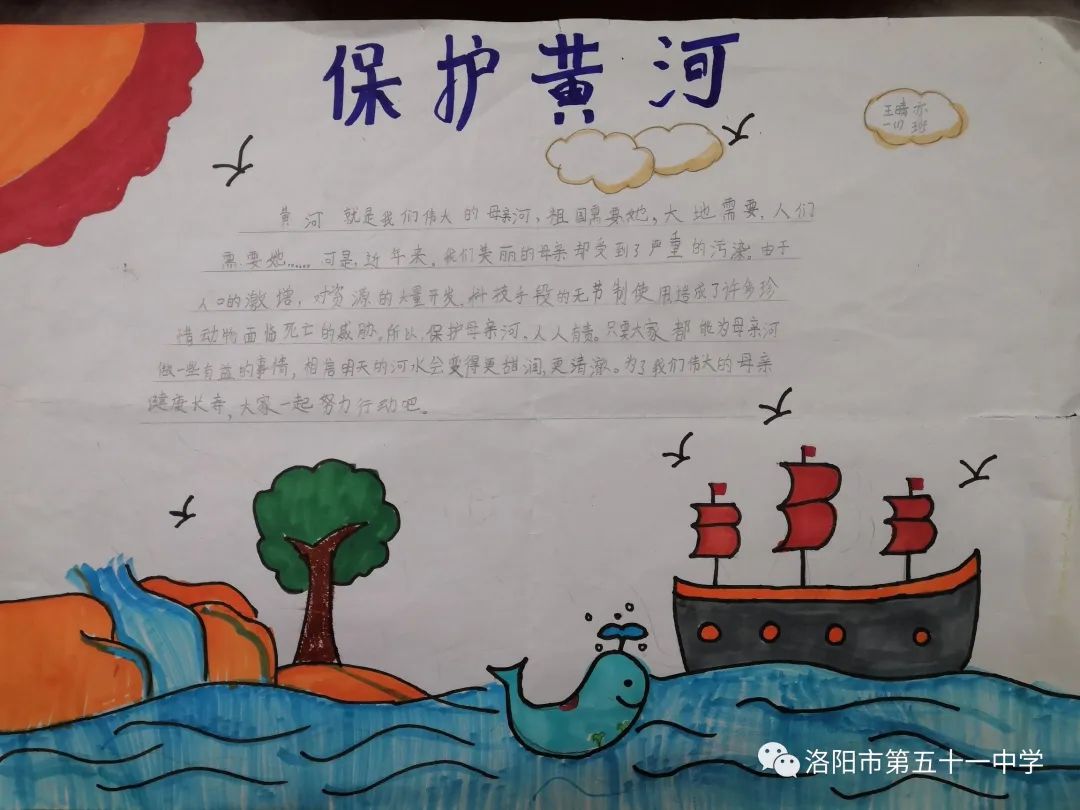 保护黄河
王晴亦
一(1)班
黄河就是我们伟大的母亲河,祖国需要她,大地需要,人们
需要她……可是,近年来,我们美丽的母亲却受到了严重的污染。由于
人口的激增,对资源的大量开发,科技手段的无节制使用造成了许多珍
惜动物面临死亡的威胁。所以,保护母亲河,人人有责。只要大家都能为母亲河
做一些有益的事情,相信明天的河水会变得更甜润,更清澈。为了我们伟大的母亲
健康长寿,大家一起努力行动吧。
洛阳市第五十一中学